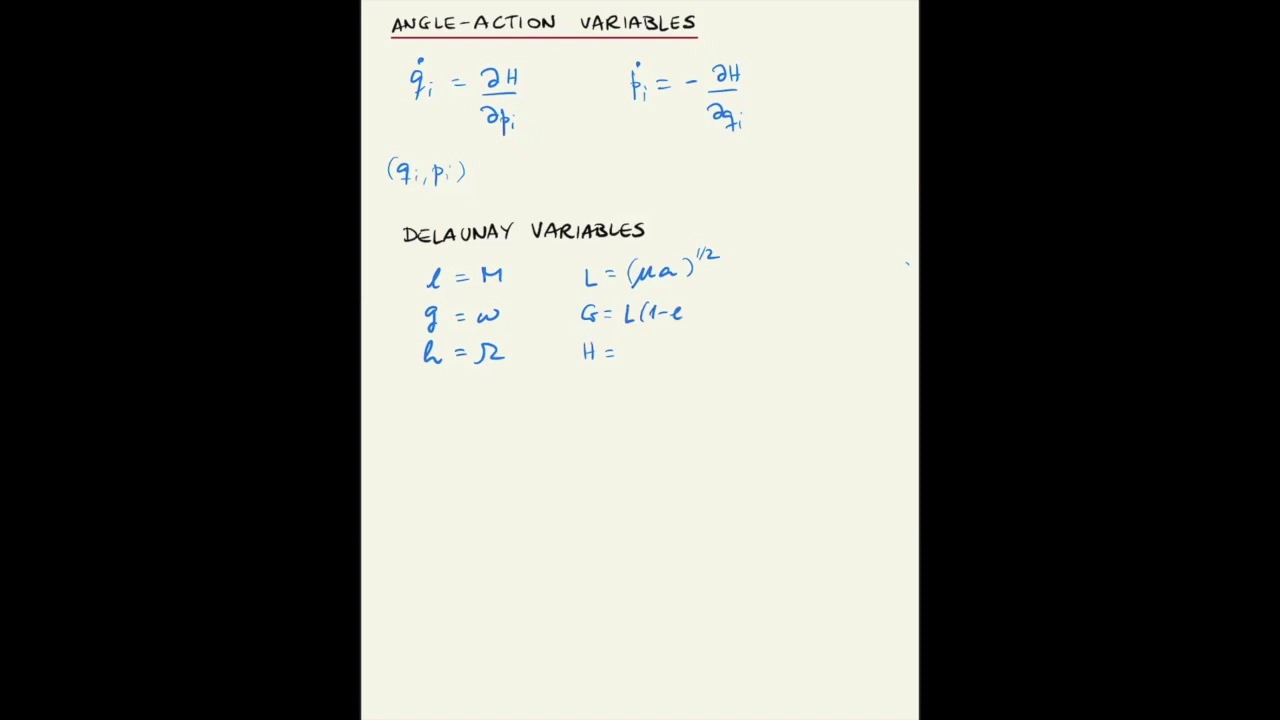 ANGLE-ACTION VARIABLES
q̇ᵢ = ∂H/∂pᵢ ṗᵢ = - ∂H/∂qᵢ
(qᵢ, pᵢ)
DELAUNAY VARIABLES
l = M L = (μa)^1/2
g = ω G = L(1-e
h = Ω H =